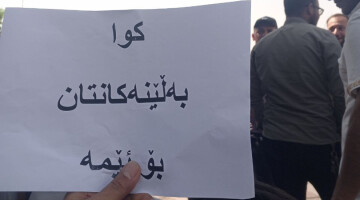 کوا
بەڵێنەکانتان
بۆ ئێمە